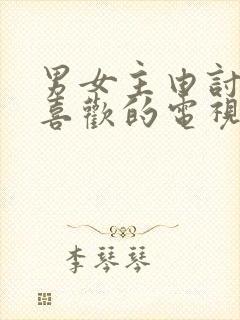 男女主由討
喜歡的電視
李琴琴